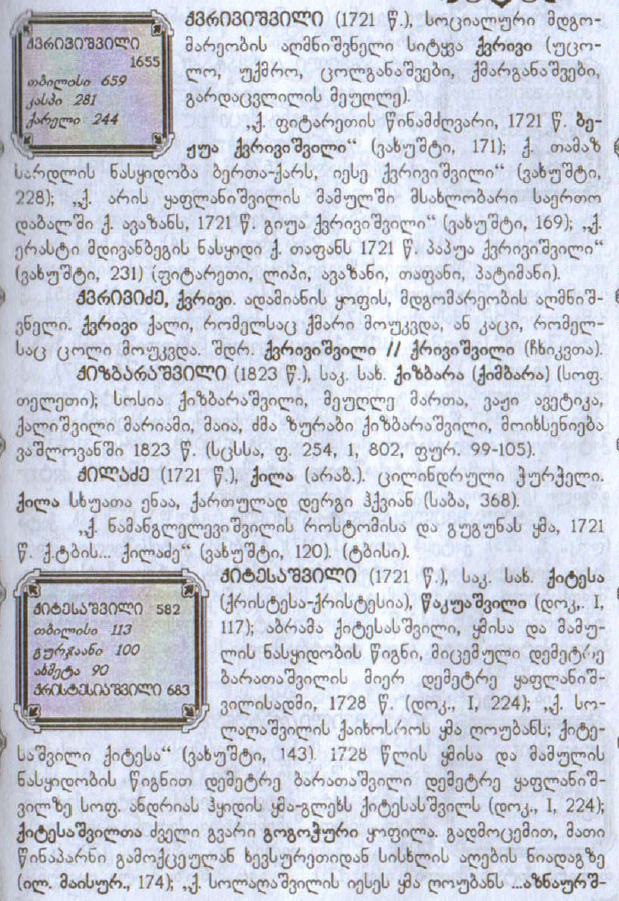 ქვრივიშვილი
1655
თბილისი 659
კასპი 281
ქარელი 244
ქვრივიშვილი (1721 წ.), სოციალური მდგო-
მარეობის აღმნიშვნელი სიტყვა ქვრივი (უცო-
ლო, უქმრო, ცოლგანაშვები, ქმარგანაშვები,
გარდაცვლილის მეუღლე).
„ქ. ფიტარეთის წინამძღვარი, 1721 წ. ბე-
ჟუა ქვრივიშვილი“ (ვახუშტი, 171); ქ. თამაზ
სარდლის ნასყიდობა ბერთა-ქარს, იესე ქვრივიშვილი“ (ვახუშტი,
228); „ქ. არის ყაფლანიშვილის მამულში მსახლობარი საერთო
დაბალში ქ. ავაზანს, 1721 წ. გიუა ქვრივიშვილი“ (ვახუშტი, 169); „ქ.
ერასტი მდივანბეგის ნასყიდი ქ. თაფანს 1721 წ. პაპუა ქვრივიშვილი“
(ვახუშტი, 231) (ფიტარეთი, ლიპი, ავაზანი, თაფანი, პატიმანი).
ქვრივიძე, ქვრივი. ადამიანის ყოფის, მდგომარეობის აღმნიშ-
ვნელი. ქვრივი ქალი, რომელსაც ქმარი მოუკვდა, ან კაცი, რომელ-
საც ცოლი მოუკვდა. შდრ. ქვრივიშვილი // ქრივიშვილი (ჩხიკვთა).
ქიზბარაშვილი (1823 წ.), საკ. სახ. ქიზბარა (ქიმბარა) (სოფ.
თელეთი); სოსია ქიზბარაშვილი, მეუღლე მართა, ვაჟი ავეტიკა,
ქალიშვილი მარიამი, მაია, ძმა ზურაბი ქიზბარაშვილი, მოიხსენიება
ვაშლოვანში 1823 წ. (სცსსა, ფ. 254, 1, 802, ფურ. 99-105).
ქილაძე (1721 წ.), ქილა (არაბ.). ცილინდრული ჭურჭელი.
ქილა სხუათა ენაა, ქართულად დერგი ჰქვიან (საბა, 368).
„ქ. ნამანგლელევიშვილის როსტომისა და გუგუნას ყმა, 1721
წ. ქ.ტბის... ქილაძე“ (ვახუშტი, 120). (ტბისი).
ქიტესაშვილი 582
თბილისი 113
გურჯაანი 100
ახმეტა 90
ქრისტესიაშვილი 683
ქიტესაშვილი (1721 წ.), საკ. სახ. ქიტესა
(ქრისტესა-ქრისტესია), წაკუაშვილი (დოკ,. I,
117); აბრამა ქიტესასშვილი, ყმისა და მამუ-
ლის ნასყიდობის წიგნი, მიცემული დემეტრე
ბარათაშვილის მიერ დემეტრე ყაფლანიშ-
ვილისადმი, 1728 წ. (დოკ., I, 224); „ქ. სო-
ლაღაშვილის ქაიხოსროს ყმა ღოუბანს; ქიტე-
საშვილი ქიტესა“ (ვახუშტი, 143). 1728 წლის ყმისა და მამულის
ნასყიდობის წიგნით დემეტრე ბარათაშვილი დემეტრე ყაფლანიშ-
ვილზე სოფ. ანდრიას ჰყიდის ყმა-გლეხს ქიტესასშვილს (დოკ., I, 224);
ქიტესაშვილთა ძველი გვარი გოგოჭური ყოფილა. გადმოცემით, მათი
წინაპარნი გამოქცეულან ხევსურეთიდან სისხლის აღების ნიადაგზე
(ილ. მაისურ., 174); „ქ. სოლაღაშვილის იესეს ყმა ღოუბანს ...აზნაურშ-